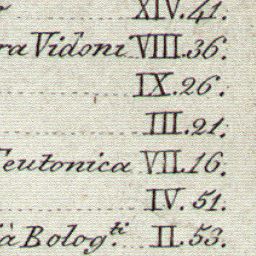 XIV.41.
ra Vidoni VIII.36.
IX.26.
III.21.
Teutonica VII.16.
IV.51.
à Bolog.ti II.53.